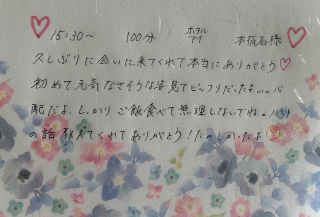 15:30〜 100分 ホテル アイ 本指名様
久しぶりに会いに来てくれて本当にありがとう♡
初めて元気なさそうな姿見てビックリだったよ... 心
配だよ、しっかりご飯食べて無理しないでね。
の話 教えてくれてありがとう!たのしかったよ